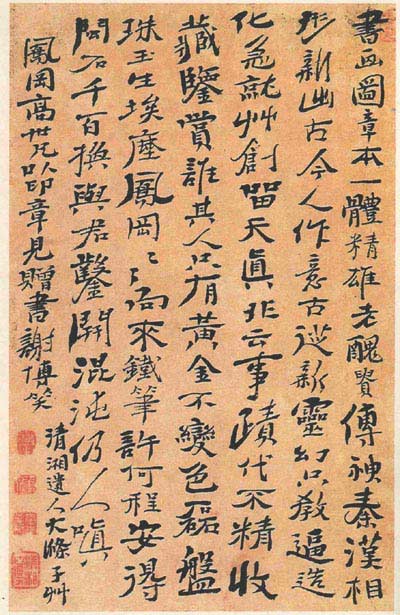 書画圖章本一體精雄老醜貴傳神秦漢相
形新出古今人作意古從新靈幻只教逼造
化急就艸創留天眞非云事蹟代不精收
藏鑒賞誰其人只有黃金不變色磊盤
珠玉生埃塵鳳岡〻〻向來鐵筆許何程安得
聞石千百換與君鑿開混沌仍人嗔
鳳岡高世兄以印章見贈書謝博笑
清湘遺人大滌子艸